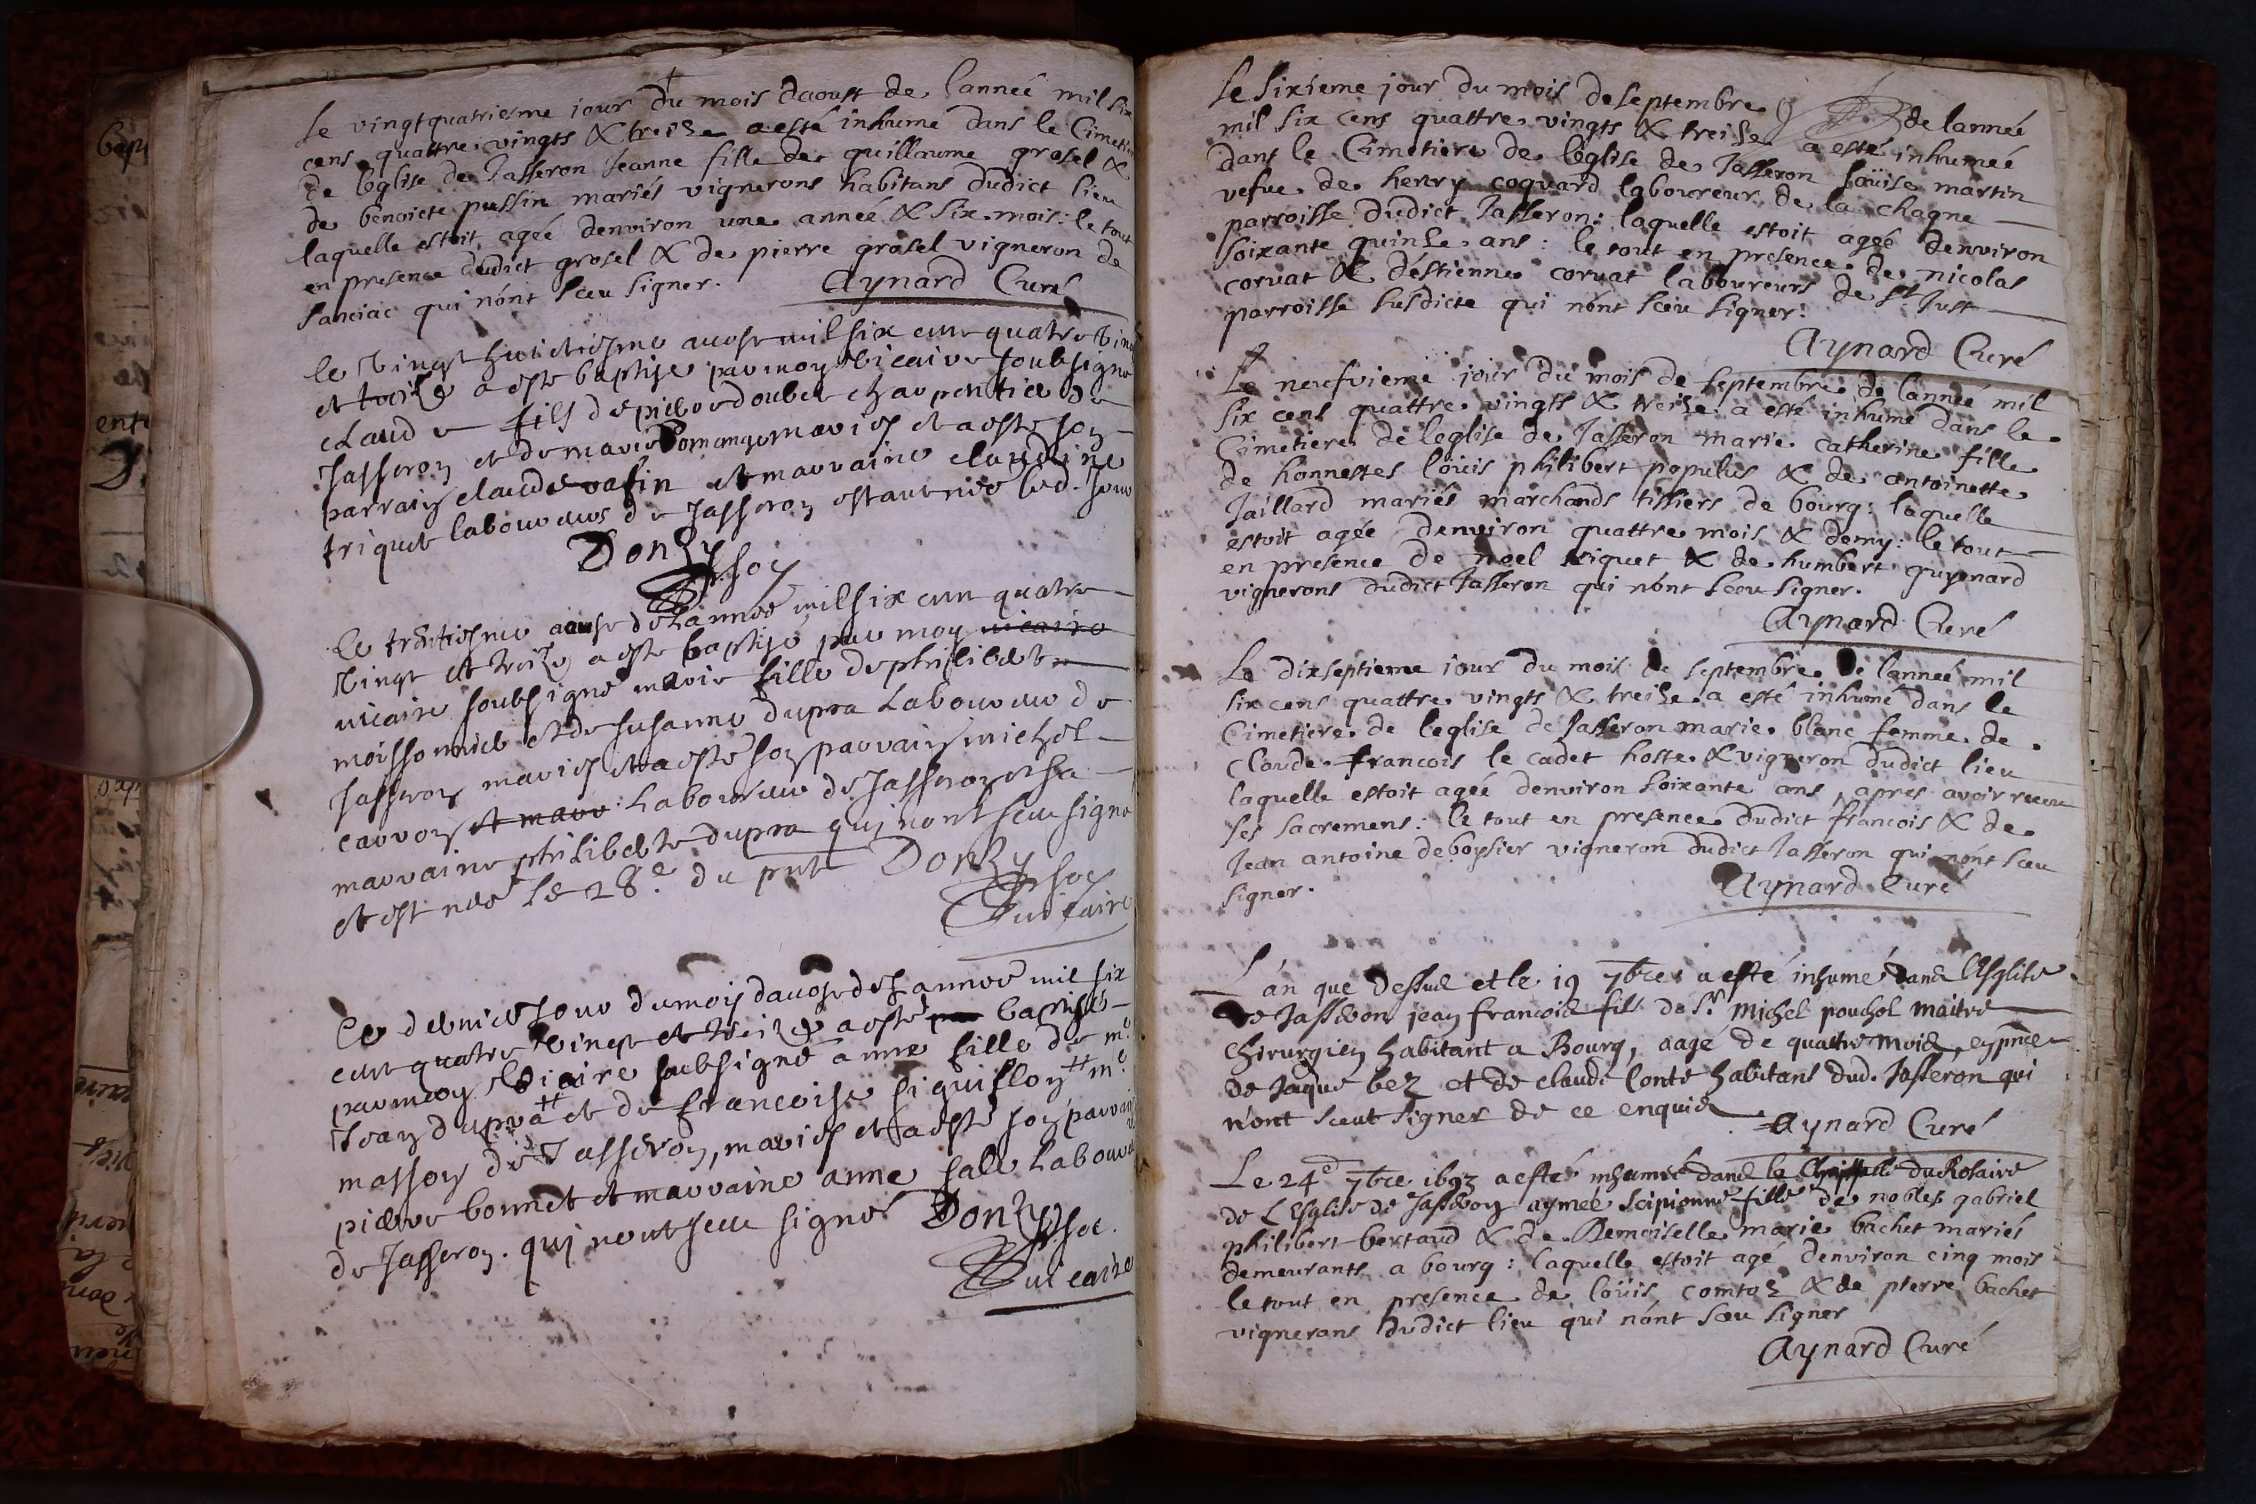 Le vingtquatriesme jour du mois daoust de lanneé mil six
cens quattre vingts & treize a esté inhumé dans le Cimetie
de leglise de Jasseron Jeanne fille de guillaume grosel &
de benoiete pussin mariés vignerons habitans dudict lieu
laquelle estoit ageé denviron une anneé & six mois: le tout
en presence dudict grosel & de pierre grosel vigneron de
sanciac qui nónt sceu signer. Aynard Curé
le vingt huictiesme aoust mil six cent quatre ving
et treize a este baptise par moy vicaire soubsigne
claude fils de pierre doubet charpentier de
Jasseron et de marie Domange maries et a este son
parrain claude vafin et marraine claudine
triquet laboureurs de Jasseron estant née led. jour
Donzy
le trentiesme aoust de lannee mil six cent quatre
vingt et treize a este baptisé par moy vicaire
vicaire soubsigné marie fille de philibert
moissonnier et de susanne dupra laboureur de
Jasseron maries et a esté son parrain michel
carron et marr laboureur de Jasseron et sa
marraine philiberte dupra qui nont sceu signe
et est née le 28.e du pnt Donzy
vicaire
le dernier jour du mois daoust de lannee mil six
cent quatre vingt et treize a esté par baptisée
par moy vicaire soubsigné anne fille de m.e
Jean dupra et de francoise siguifloy m.e
masson de Jasseron, maries et a esté son parrain
pierre bonnet et marraine anne sale laboure
de Jasseron. qui nont sceu signé Donzy
vicaire
Le sixieme jour du mois de septembre de lanneé
mil six cens quattre vingts & treize a esté inhumeé
dans le Cimetiere de leglise de Jasseron loüise martin
vefve de henry coquard laboureur de la chagne
parroisse dudict Jasseron: laquelle estoit ageé denviron
soixante quinze ans: le tout en presence de nicolas
corvat & déstienne corvat laboureurs de st Just
parroisse susdicte qui nónt sceu signer.
Aynard Curé
Le neufvieme jour du mois de septembre de lanneé mil
six cens quattre vingts & treize a esté inhumé dans le
Cimetiere de leglise de Jasseron marie catherine fille
de honnestes loüis philibert populus & de antoinette
Jaillard mariés marchands tissiers de bourg: laquelle
estoit agée denviron quattre mois & demy: le tout
en presence de noel riquet & de humbert guynard
vignerons dudict Jasseron qui nónt sceu signer.
Aynard Curé
Le dixseptieme jour du mois de septembre de lanneé mil
six cens quattre vingts & treize a esté inhumé dans le
Cimetiere de leglise de Jasseron marie blanc femme de
Claude francois le cadet hoste & vigneron dudict lieu
laquelle estoit ageé denviron soixante ans, apres avoir receu
ses sacremens: le tout en presence dudict francois & de
Jean antoine deboysier vigneron dudict Jasseron qui nónt sceu
signer. Aynard Curé
L'án que dessus et le 19 7bre a esté inhumé dans l'Esglise
de Jasseron jean francois fils de Sr. Michel pouchol maitre
chirurgien habitant a Bourg, aagé de quattre mois, en pnce
de Jaque bez et de claude Conte habitans dud. Jasseron qui
n'ont sceut signer de ce enquis Aynard Curé
Le 24e 7bre 1693 a estée inhumeé dans la Chappelle du Rosaire
de L'Esglise de Jasseron aymee Scipionne fille de nobles gabriel
philibert bertaud & de Demoiselle marie bachet mariés
demeurants a bourg: laquelle estoit agé denviron cinq mois
le tout en presence de loüis comtoz & de pierre bachet
vignerons dudict lieu qui nónt sceu signer
Aynard Curé